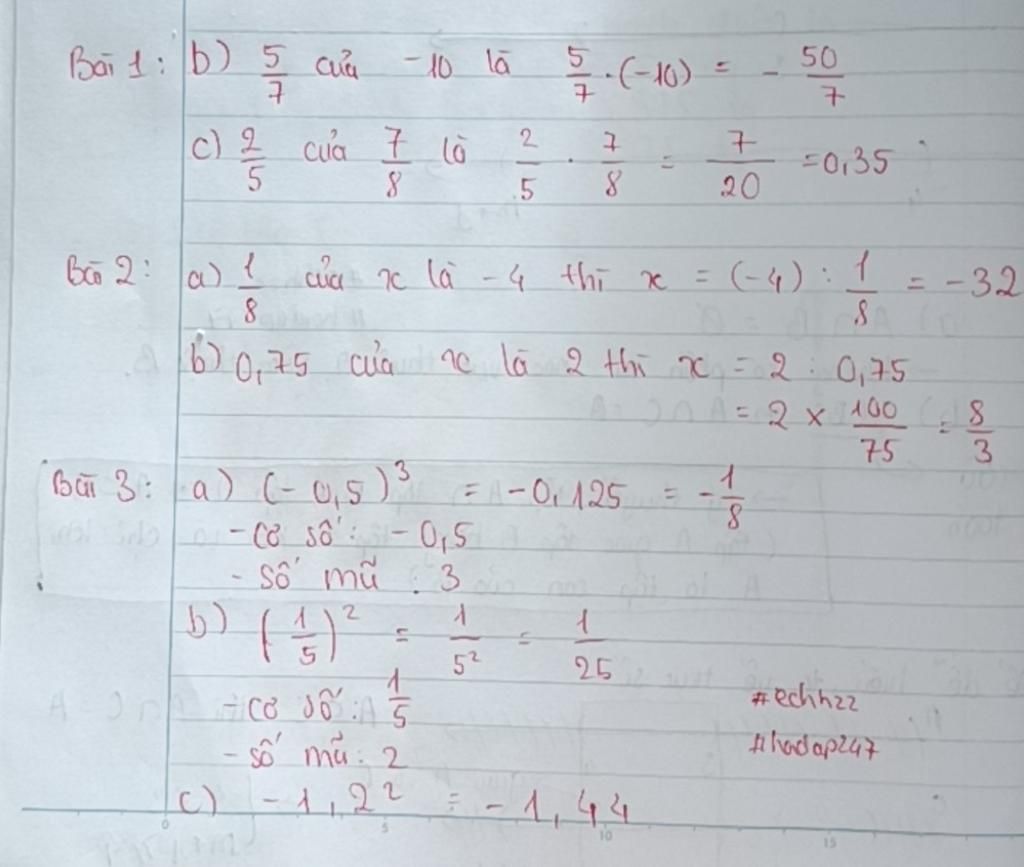 Bài 1: b) 5/7 của -10 là 5/7 . (-10) = - 50/7
c) 2/5 của 7/8 là 2/5 . 7/8 = 7/20 = 0,35
Bài 2: a) 1/8 của x là -4 thì x = (-4) : 1/8 = -32
b) 0,75 của x là 2 thì x = 2 : 0,75
= 2 × 100/75 = 8/3
Bài 3: a) (-0,5)³ = -0,125 = -1/8
- cơ số: -0,5
- số mũ : 3
b) (1/5)² = 1/5² = 1/25
- cơ số: 1/5
#echh22
- số mũ: 2
#hadap247
c) -1,2² = -1,44
0 5 10 15